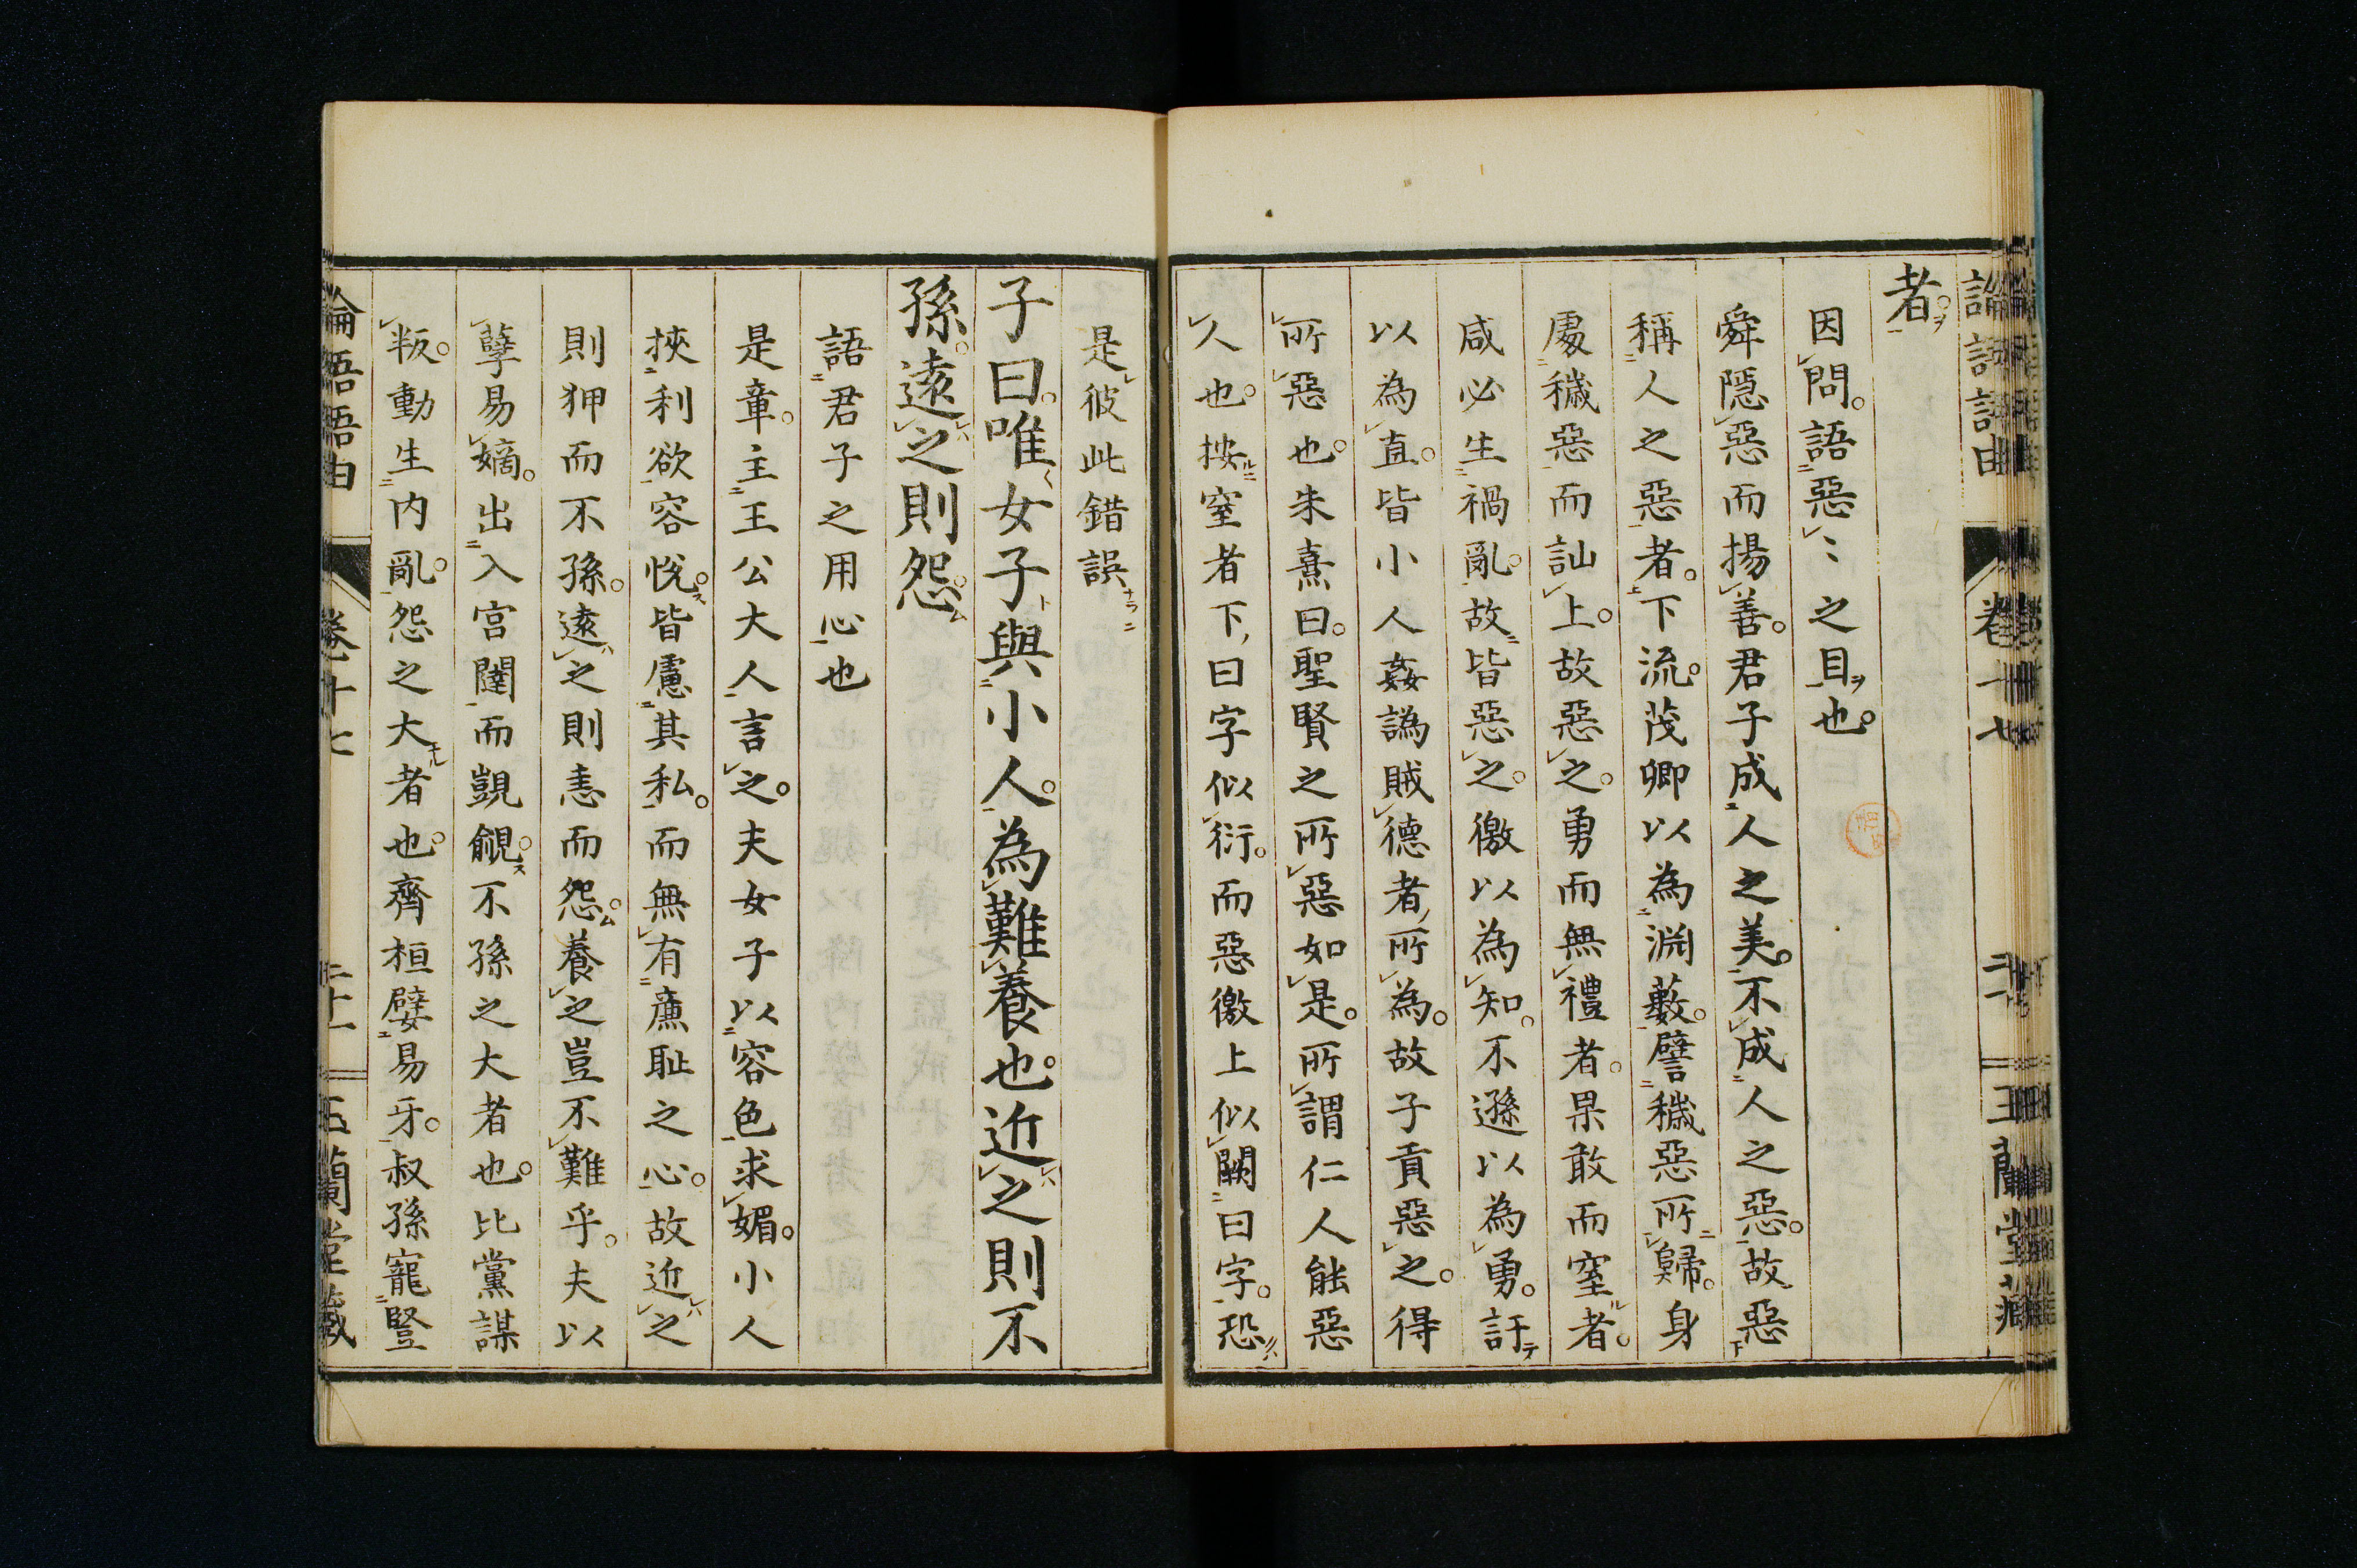 論語語由 卷十七
者。
因問。語惡〻之目也。
舜隱惡而揚善。君子成人之美。不成人之惡。故惡
稱人之惡者。下流。茂卿以為淵藪。譬穢惡所歸。身
處穢惡而訕上。故惡之。勇而無禮者。果敢而窒者。
咸必生禍亂。故皆惡之。徼以為知。不遜以為勇。訐
以為直。皆小人姦譌賊德者所為。故子貢惡之。得
所惡也。朱熹曰。聖賢之所惡如是。所謂仁人能惡
人也。按窒者下曰字似衍。而惡徼上似闕曰字。恐
是彼此錯誤
子曰。唯女子與小人。為難養也。近之則不
孫。遠之則怨。
語君子之用心也
是章。主王公大人言之。夫女子以容色求媚。小人
挾利欲容悅。皆慮其私。而無有廉恥之心。故近之
則狎而不孫。遠之則恚而怨。養之豈不難乎。夫以
孽易嫡。出入宮闥而覬覦。不孫之大者也。比黨謀
叛。動生內亂。怨之大者也。齊桓嬖易牙。叔孫寵豎
論語語由 卷十七 二十一 五蘭堂藏